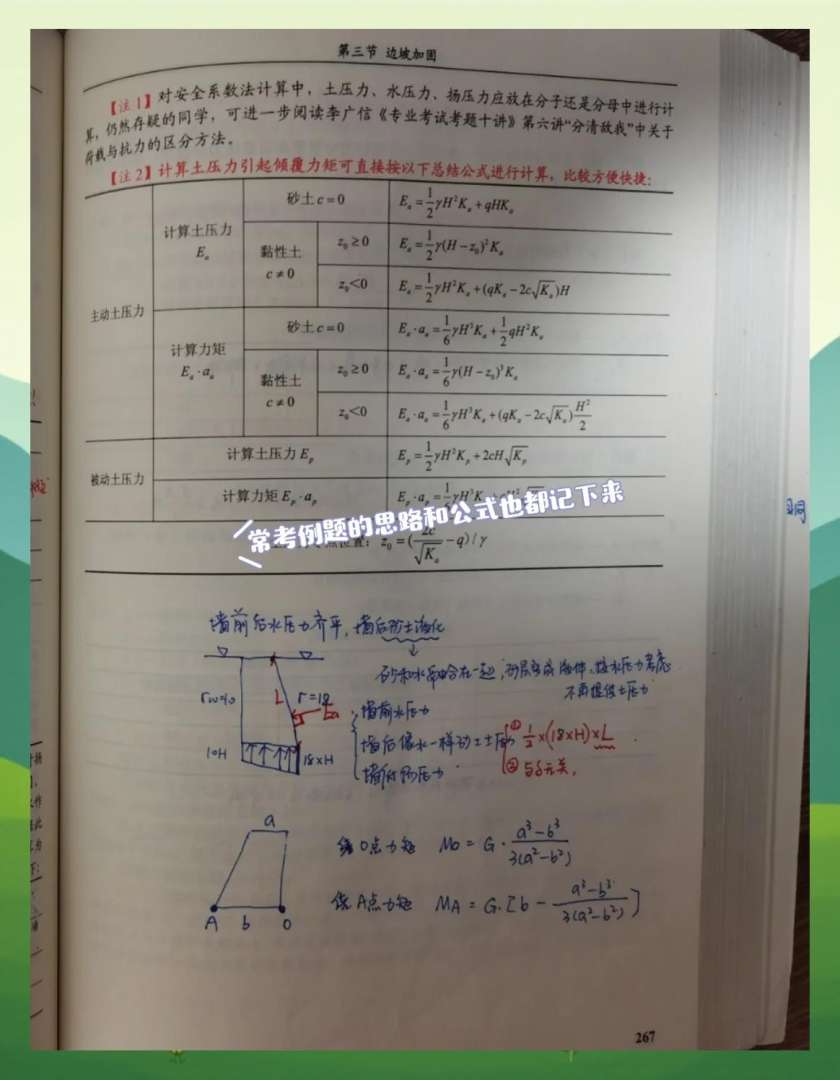 第三节 边坡加固
【注1】对安全系数法计算中，土压力、水压力、扬压力应放在分子还是分母中进行计
算，仍然存疑的同学，可进一步阅读李广信《专业考试考题十讲》第六讲“分清敌我”中关于
荷载与抗力的区分方法。
【注2】计算土压力引起倾覆力矩可直接按以下总结公式进行计算，比较方便快捷：
主动土压力
计算土压力
Eₐ
砂土 c=0
Eₐ=½γH²Kₐ+qHKₐ
黏性土
c≠0
z₀≥0
Eₐ=½γ(H−z₀)²Kₐ
z₀<0
Eₐ=½γH²Kₐ+(qKₐ−2c√Kₐ)H
计算力矩
Eₐ·aₐ
砂土 c=0
Eₐ·aₐ=1/6γH³Kₐ+½qH²Kₐ
黏性土
c≠0
z₀≥0
Eₐ·aₐ=1/6γ(H−z₀)³Kₐ
z₀<0
Eₐ·aₐ=1/6γH³Kₐ+(qKₐ−2c√Kₐ)H²/2
被动土压力
计算土压力 Eₚ
Eₚ=½γH²Kₚ+2cH√Kₚ
计算力矩 Eₚ·aₚ
Eₚ·aₚ=1/6γH³K
常考例题的思路和公式也都记下来
位置：z₀=(2c/√Kₐ−q)/γ
墙前后水压力齐平，墙后砂土液化
不再提供土压力
L
r=18
Ea
墙前水压力
10H
18×H
墙后像水一样动土压力
① ½×(18×H)×L
② 与δ无关。
a
A b O
绕O点力矩 Mo = G·(a³−b³)/3(a²−b²)
绕A点力矩 MA = G·[b − (a³−b³)/3(a²−b²)]
267